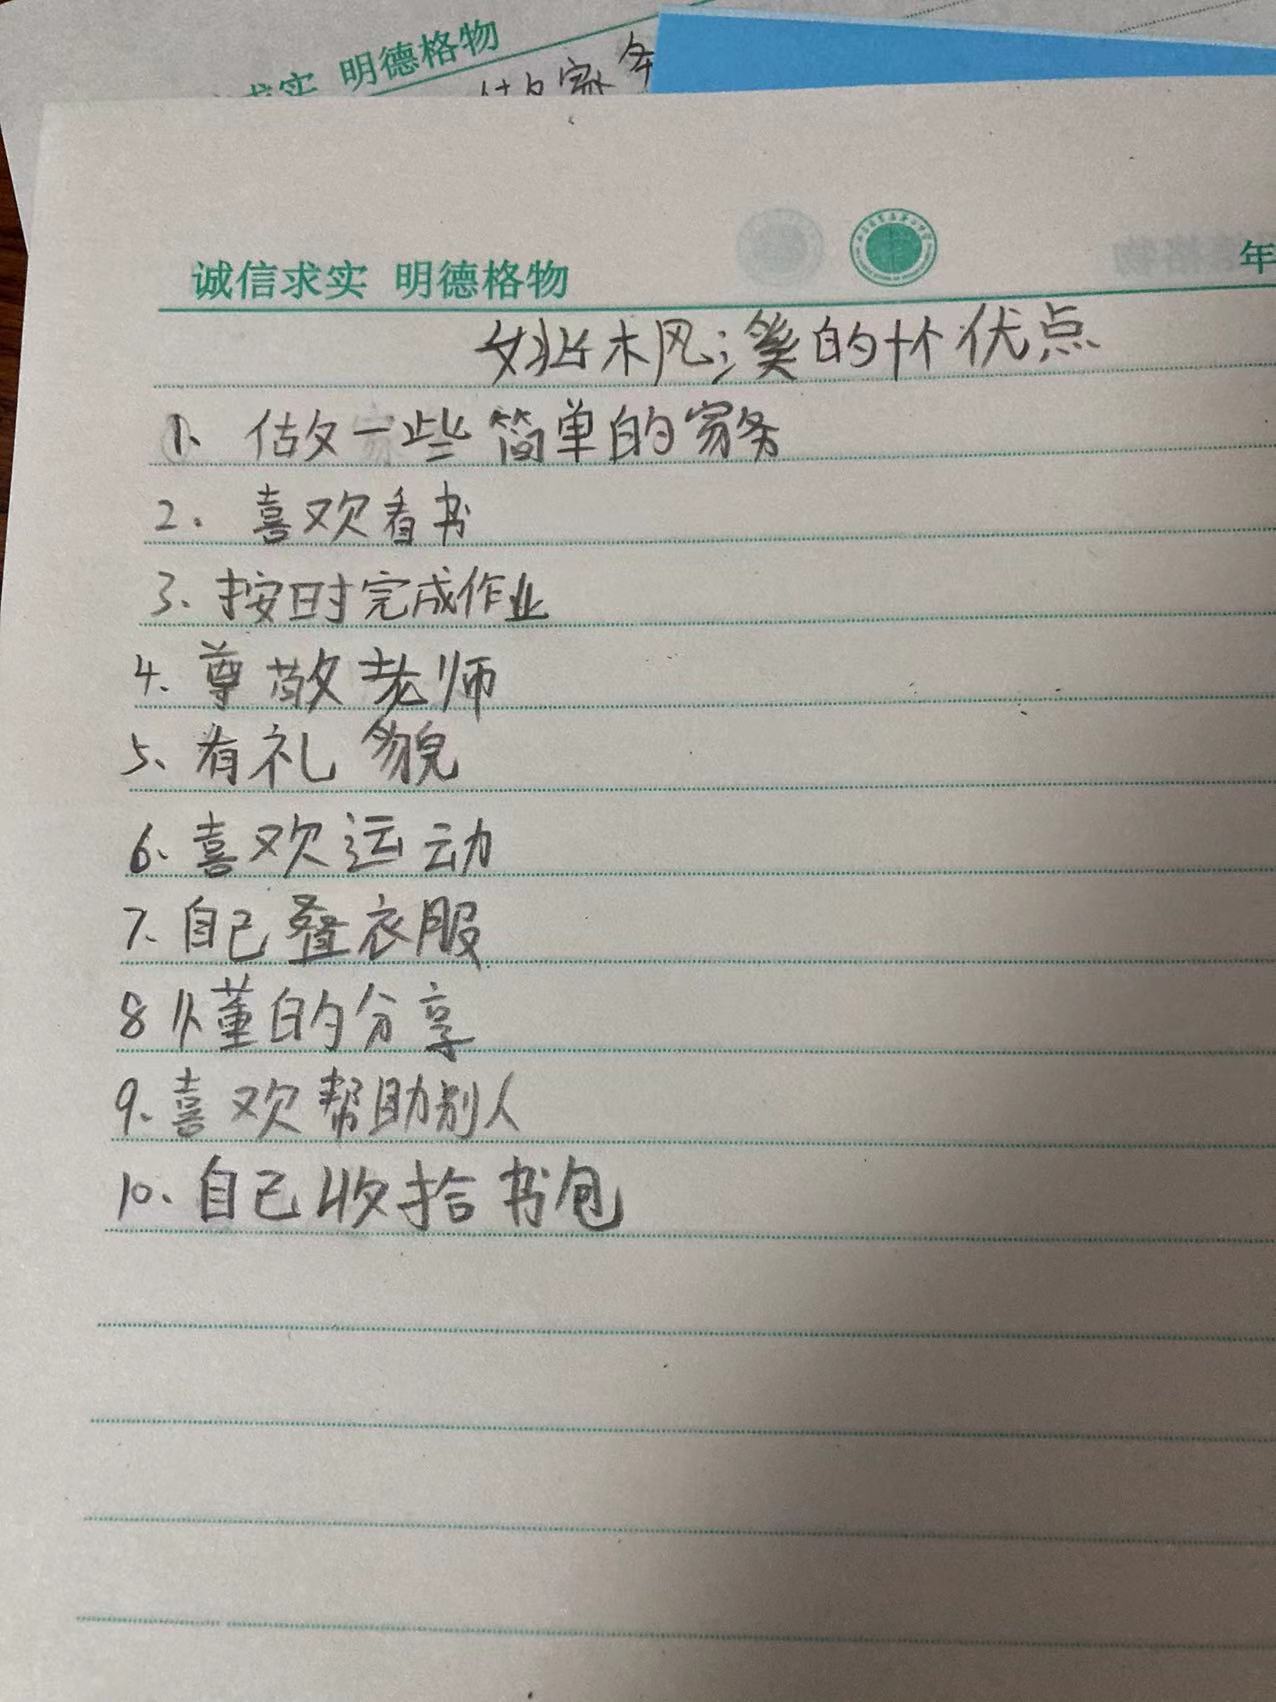 求实 明德格物
诚信求实 明德格物
年
姚枫溪的十个优点
1、做一些简单的家务
2. 喜欢看书
3、按时完成作业
4、尊敬老师
5、有礼貌
6、喜欢运动
7、自己叠衣服
8 懂的分享
9、喜欢帮助别人
10、自己收拾书包